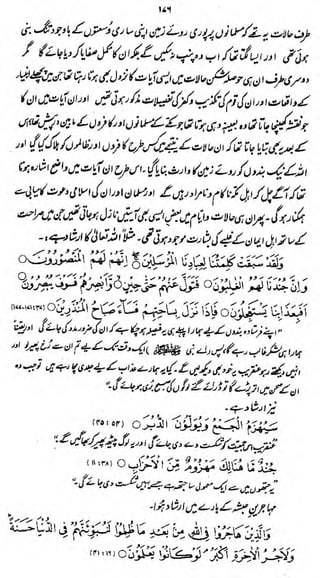 ۱۷۶
طرف حالات یہ تھے کہ مسلمانوں پر پوری روئے زمین اپنی ساری وسعتوں کے باوجود تنگ بنی
ہوئی تھی اور ایسا لگتا تھا کہ اب وہ پنپ نہ سکیں گے بلکہ ان کا مکمل صفایا کر دیا جائے گا مگر
دوسری طرف ان ہی حوصلہ شکن حالات میں ایسی آیات کا نزول بھی ہوتا رہتا تھا جن میں پچھلے انبیاء
کے واقعات اور ان کی قوم کی تکذیب و کفر کی تفصیلات مذکور ہوتی تھیں اور ان میں ان کا
جو نقشہ کھینچا جاتا تھا وہ بعینہ وہی ہوتا تھا جو مکے کے مسلمانوں اور کافروں کے مابین درپیش تھا اس
کے بعد یہ بھی بتایا جاتا تھا کہ ان حالات کے نتیجے میں کس طرح کافروں اور ظالموں کو ہلاک کیا گیا اور
اللہ کے نیک بندوں کو روئے زمین کا وارث بنایا گیا۔ اس طرح ان آیات میں واضح اشارہ ہوتا
تھا کہ آگے چل کر اہل مکہ ناکام و نامراد رہیں گے اور مسلمان اور ان کی اسلامی دعوت کامیابی سے
ہمکنار ہوگی۔ پھر ان ہی حالات و ایام میں بعض ایسی بھی آیتیں نازل ہو جاتی تھیں جن میں صراحت
کے ساتھ اہل ایمان کے غلبے کی بشارت موجود ہوتی تھی۔ مثلاً اللہ تعالیٰ کا ارشاد ہے۔
وَلَقَدْ سَبَقَتْ كَلِمَتُنَا لِعِبَادِنَا الْمُرْسَلِيْنَ ○ اِنَّهُمْ لَهُمُ الْمَنْصُوْرُوْنَ ○
وَاِنَّ جُنْدَنَا لَهُمُ الْغٰلِبُوْنَ ○ فَتَوَلَّ عَنْهُمْ حَتّٰى حِيْنٍ ○ وَاَبْصِرْهُمْ فَسَوْفَ يُبْصِرُوْنَ ○
اَفَبِعَذَابِنَا يَسْتَعْجِلُوْنَ ○ فَاِذَا نَزَلَ بِسَاحَتِهِمْ فَسَآءَ صَبَاحُ الْمُنْذَرِيْنَ ○ (۳۷: ۱۷۱-۱۷۷)
"اپنے فرستادہ بندوں کے لیے ہمارا پہلے ہی یہ فیصلہ ہو چکا ہے کہ ان کی ضرور مدد کی جائے گی اور یقیناً
ہمارا ہی لشکر غالب رہے گا، پس (اے نبی ﷺ) ایک وقت تک کے لیے تم ان سے رخ پھیر لو اور
انہیں دیکھتے رہو عنقریب یہ خود بھی دیکھ لیں گے۔ کیا یہ ہمارے عذاب کے لیے جلدی مچا رہے ہیں تو جب وہ
ان کے صحن میں اتر پڑے گا تو ڈرائے گئے لوگوں کی صبح بری ہو جائے گی۔"
نیز ارشاد ہے۔
سَيُهْزَمُ الْجَمْعُ وَيُوَلُّوْنَ الدُّبُرَ ○ (۵۴: ۴۵)
"عنقریب اس جمعیت کو شکست دے دی جائے گی اور یہ لوگ پیٹھ پھیر کر بھاگیں گے۔"
جُنْدٌ مَّا هُنَالِكَ مَهْزُوْمٌ مِّنَ الْاَحْزَابِ ○ (۳۸: ۱۱)
"یہ جتھوں میں سے ایک معمولی سا جتھہ ہے جسے یہیں شکست دی جائے گی۔"
مہاجرین حبشہ کے بارے میں ارشاد ہوا۔
وَالَّذِيْنَ هَاجَرُوْا فِى اللّٰهِ مِنْۢ بَعْدِ مَا ظُلِمُوْا لَنُبَوِّئَنَّهُمْ فِى الدُّنْيَا حَسَنَةً ط
وَلَاَجْرُ الْاٰخِرَةِ اَكْبَرُ م لَوْ كَانُوْا يَعْلَمُوْنَ ○ (۱۶: ۴۱)